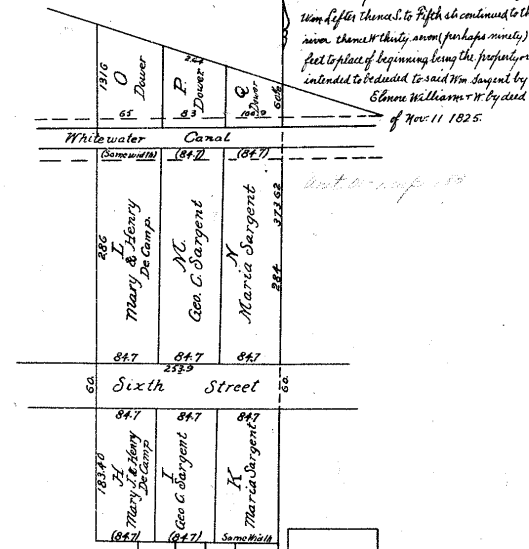 Wm Lefter thence S. to Fifth str continued to th
river thence W thirty seven (perhaps ninety)
feet to place of beginning being the property or
intended to be deeded to said Wm. Sargent by
Elmore Williams + W. by deed
of Nov. 11 1825.
1316
O
Dower
65
P.
Dower
83
Q
Dower
100.9
60
Whitewater Canal
(Same width)
(84.7)
(84.7)
286
L
Mary & Henry
De Camp.
84.7
M.
Geo. C. Sargent
84.7
N
Maria Sargent
84.7
373 62
284
253.9
60.
Sixth Street
60.
84.7
84.7
84.7
183.40
H
Mary J. & Henry
De Camp
(84.7)
I
Geo C. Sargent
(84.7)
K
Maria Sargent
Same Width